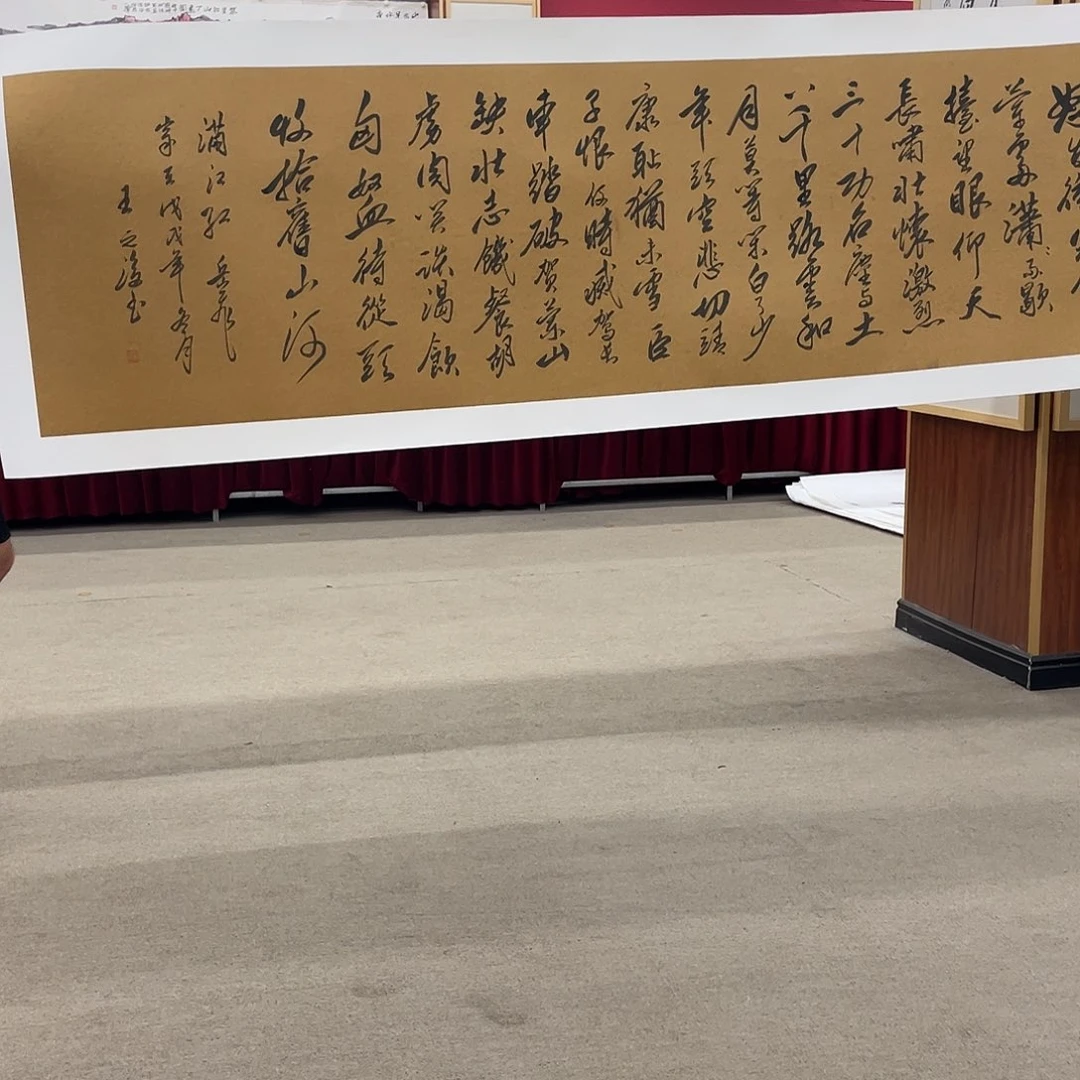 闌處瀟瀟雨歇
擡望眼仰天
長嘯壯懷激烈
三十功名塵与土
八千里路雲和
月莫等閑白了少
年頭空悲切靖
康恥猶未雪臣
子恨何時滅駕長
車踏破賀蘭山
缺壯志饑餐胡
虜肉笑談渴飲
匈奴血待從頭
收拾舊山河
滿江紅 岳飛
歲在戊戌年冬月
王之書